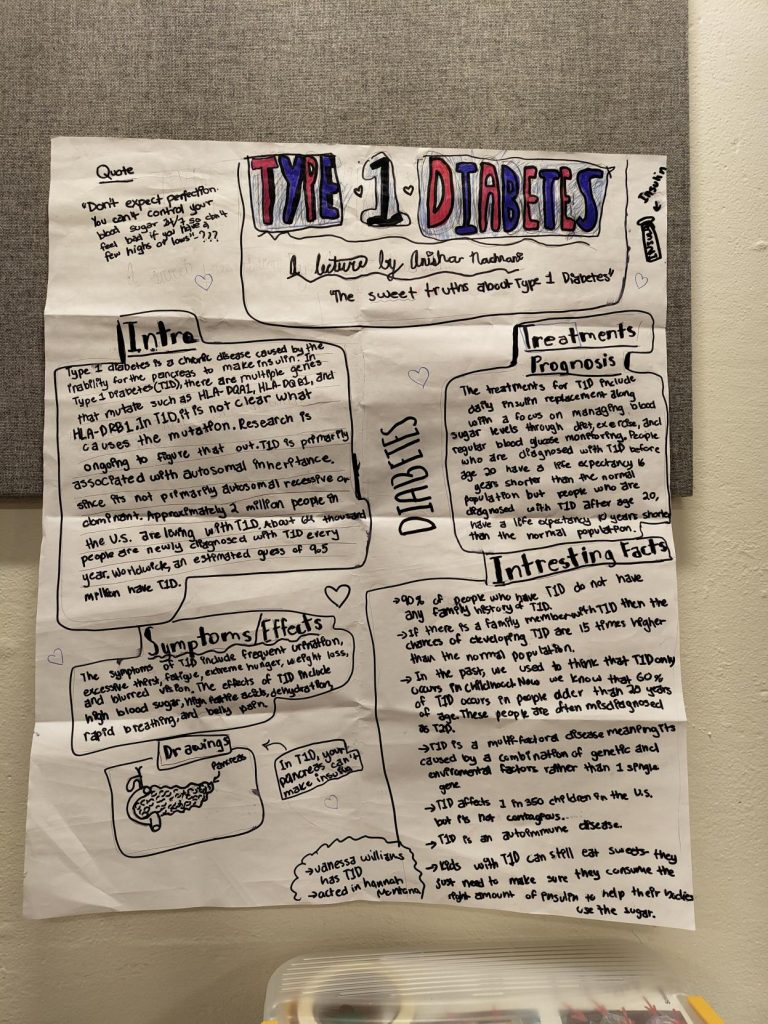 Quote
"Don't expect perfection.
You can't control your
blood sugar 24/7 so don't
feel bad if you have a
few highs or lows" - ???
TYPE 1 DIABETES
A lecture by Anisha
"The sweet truths about Type 1 Diabetes"
Insulin
Intro
Type 1 diabetes is a chronic disease caused by the
inability for the pancreas to make insulin. In
Type 1 Diabetes (T1D), there are multiple genes
that mutate such as HLA-DQA1, HLA-DQB1, and
HLA-DRB1. In T1D, it is not clear what
causes the mutation. Research is
ongoing to figure that out. T1D is primarily
associated with autosomal inheritance.
since its not primarily autosomal recessive or
dominant. Approximately 2 million people in
the U.S. are living with T1D. About 64 thousand
people are newly diagnosed with T1D every
year. Worldwide, an estimated guess of 9.5
million have T1D.
Symptoms/Effects
The symptoms of T1D include frequent urination,
excessive thirst, fatigue, extreme hunger, weight loss,
and blurred vision. The effects of T1D include
high blood sugar, high acids, dehydration,
rapid breathing, and belly pain.
Drawings
Pancreas
In T1D, your
pancreas can't
make insulin
DIABETES
Treatments
Prognosis
The treatments for T1D include
daily insulin replacement along
with a focus on managing blood
sugar levels through diet, exercise, and
regular blood glucose monitoring. People
who are diagnosed with T1D before
age 20 have a life expectancy 16
years shorter than the normal
population but people who are
diagnosed with T1D after age 20,
have a life expectancy 10 years shorter
than the normal population.
Intresting Facts
→ 90% of people who have T1D do not have
any family history of T1D.
→ If there is a family member with T1D then the
chances of developing T1D are 15 times higher
than the normal population.
→ In the past, we used to think that T1D only
occurs in childhood. Now we know that 60%
of T1D occurs in people older than 20 years
of age. These people are often misdiagnosed
as T2D.
→ T1D is a multi-factoral disease meaning its
caused by a combination of genetic and
enviromental factors rather than 1 single
gene
→ T1D affects 1 in 350 children in the U.S.
but its not contagious.
→ T1D is an autoimmune disease.
→ Kids with T1D can still eat sweets they
just need to make sure they consume the
right amount of insulin to help their bodies
use the sugar.
→ vanessa williams
has T1D
→ acted in hannah
Montana